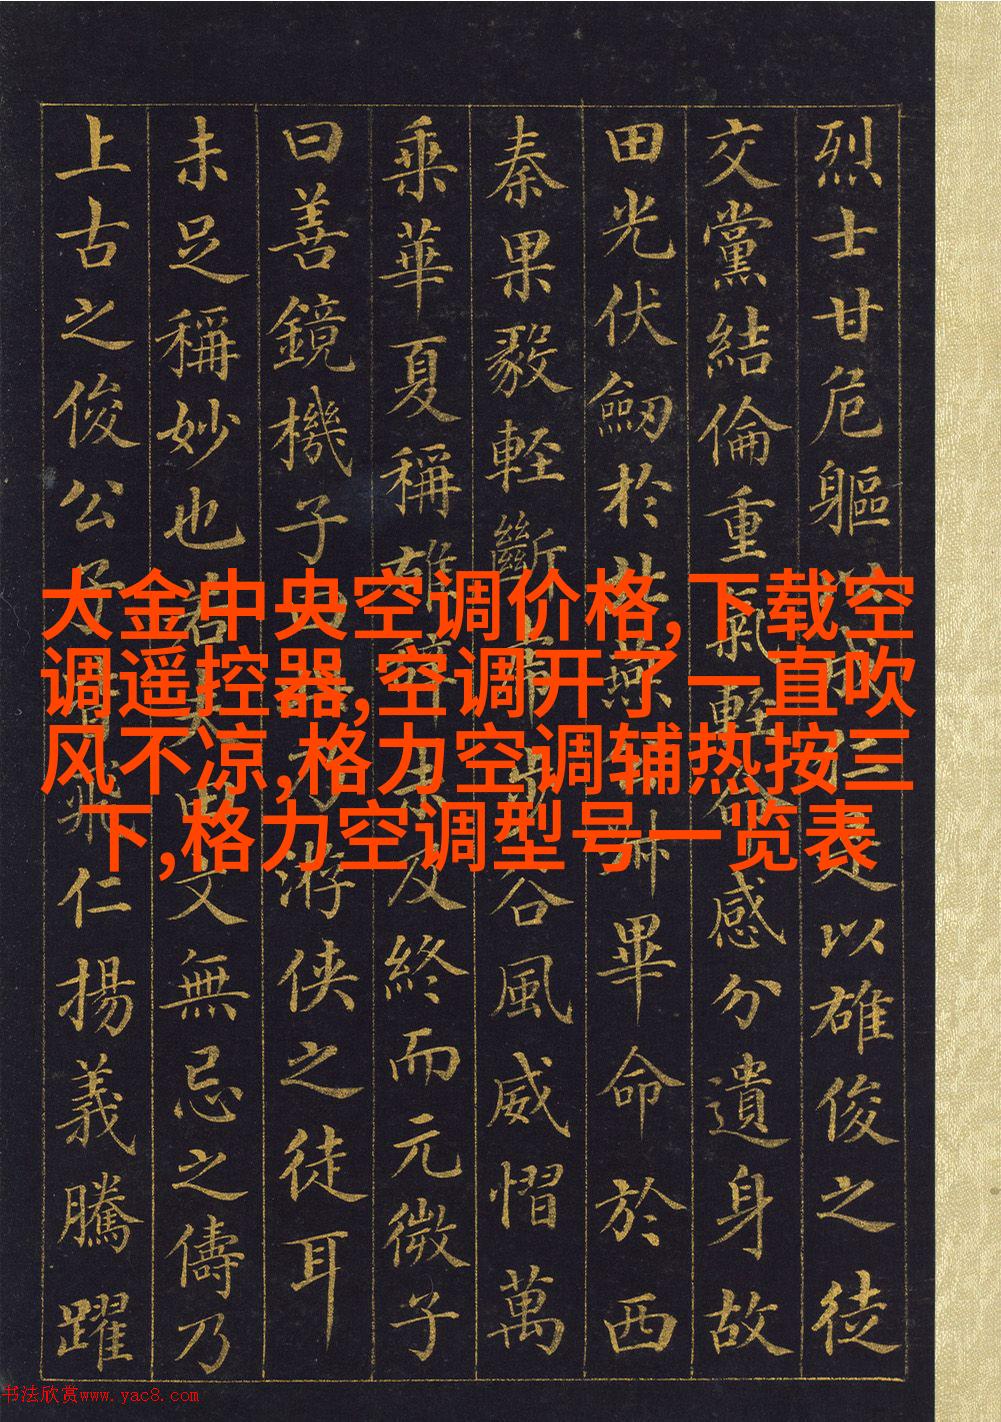 烈士甘危軀以成仁是以雄俊之徒
交黨結倫重氣輕命感分遺身故
田光伏劒於北燕公叔畢命於西
秦果毅輕斷虎步谷風威慴萬
乘華夏稱雄辭未及終而元微子
曰善鏡機子曰此乃游俠之徒耳
未足稱妙也若夫田文無忌之儔乃
上古之俊公子也皆飛仁揚義騰躍
大金中央空调价格,下载空
调遥控器,空调开了一直吹
风不凉,格力空调辅热按三
下,格力空调型号一览表
书法欣赏www.yac8.com